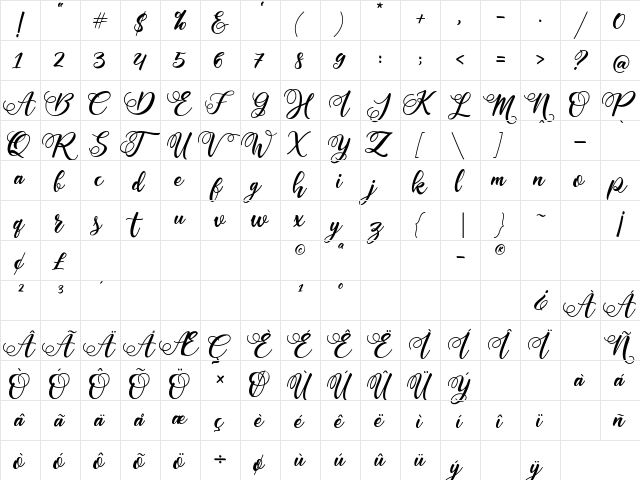 ! " # $ % & ' ( ) * + , - . / 0
1 2 3 4 5 6 7 8 9 : ; < = > ? @
A B C D E F G H I J K L M N O P
Q R S T U V W X Y Z [ \ ] -
a b c d e f g h i j k l m n o p
q r s t u v w x y z { | } ~ ¡
¢ £ © ª - ®
² ³ ´ ¹ º ¿ À Á
Â Ã Ä Å Æ Ç È É Ê Ë Ì Í Î Ï Ñ
Ò Ó Ô Õ Ö × Ø Ù Ú Û Ü Ý à á
â ã ä å æ ç è é ê ë ì í î ï ñ
ò ó ô õ ö ÷ ø ù ú û ü ý ÿ